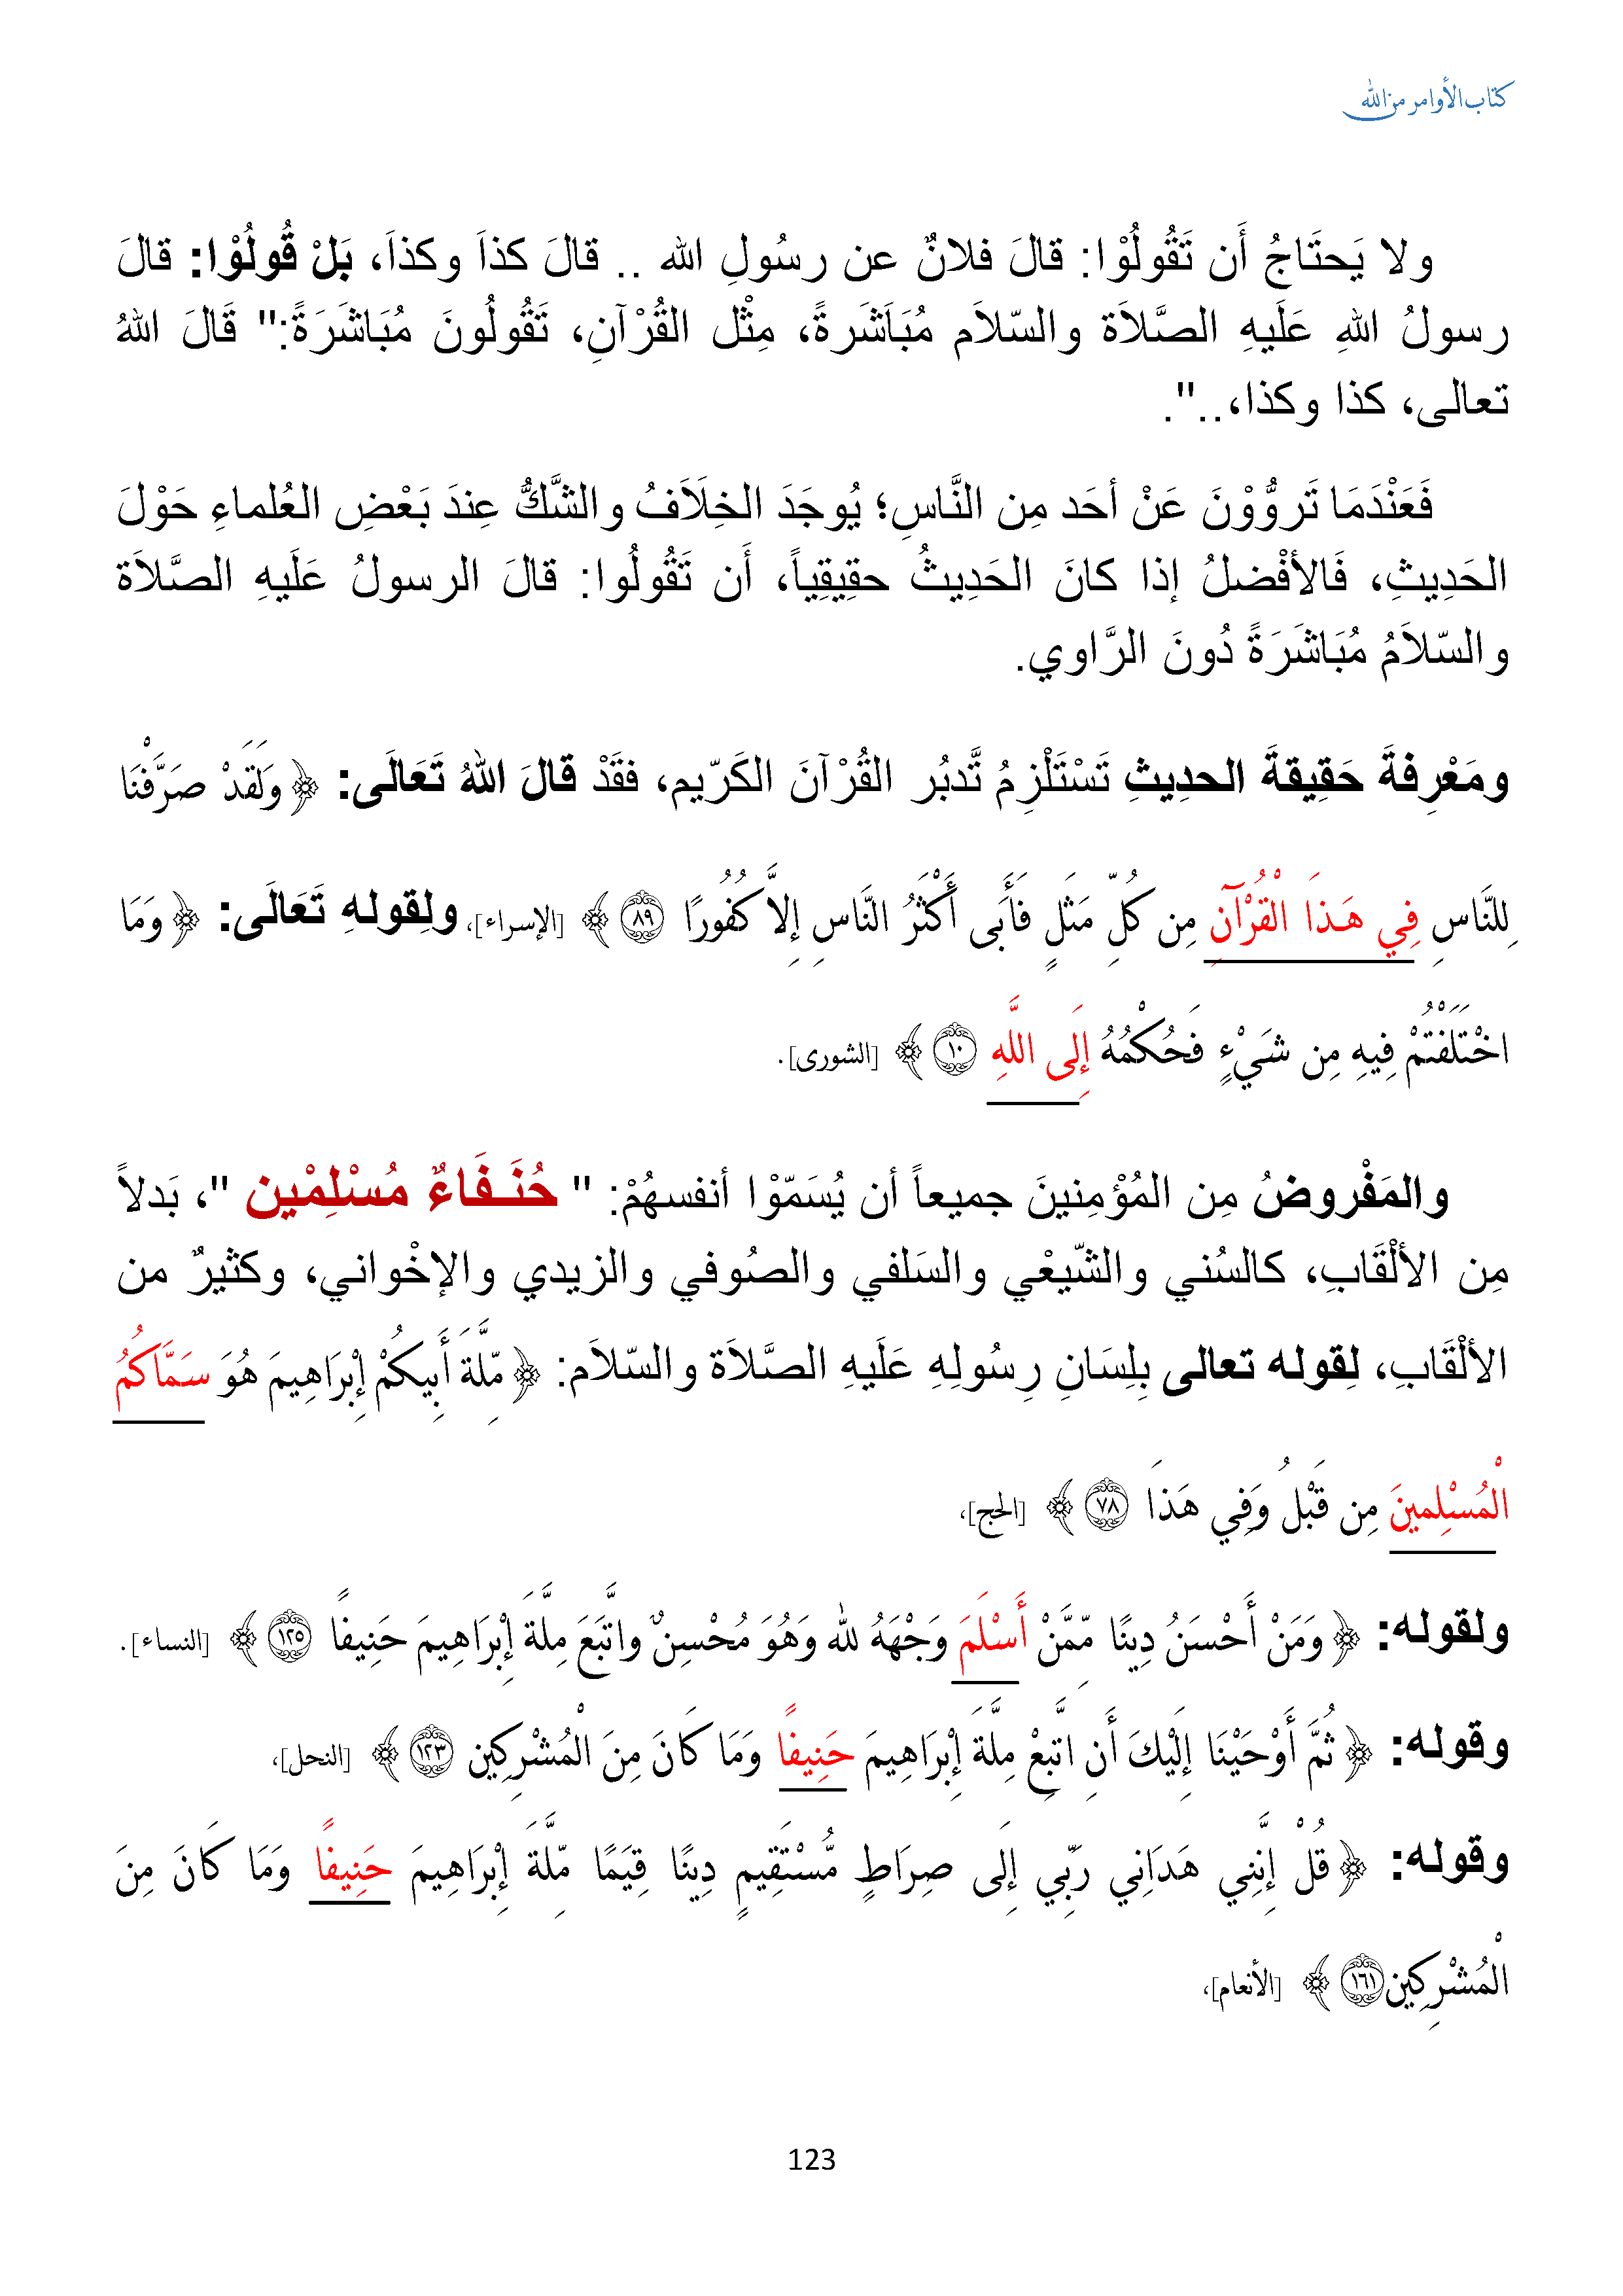 كتاب الأوامر من الله
ولا يَحتَاجُ أَن تَقُولُوْا: قالَ فلانٌ عن رسُولِ الله .. قالَ كذاَ وكذاَ، بَلْ قُولُوْا: قالَ
رسولُ اللهِ عَلَيهِ الصَّلاَة والسّلاَم مُبَاَشَرةً، مِثْل القُرْآنِ، تَقُولُونَ مُبَاشَرَةً:" قَالَ اللهُ
تعالى، كذا وكذا،..".
فَعَنْدَمَا تَروُّوْنَ عَنْ أحَد مِن النَّاسِ؛ يُوجَدَ الخِلَاَفُ والشَّكُّ عِندَ بَعْضِ العُلماءِ حَوْلَ
الحَدِيثِ، فَالأفْضلُ إذا كانَ الحَدِيثُ حقِيقِياً، أَن تَقُولُوا: قالَ الرسولُ عَلَيهِ الصَّلاَة
والسّلاَمُ مُبَاشَرَةً دُونَ الرَّاوي.
ومَعْرِفةَ حَقِيقةَ الحدِيثِ تَسْتَلْزِمُ تَّدبُر القُرْآنَ الكَرّيم، فقَدْ قالَ اللهُ تَعَالَى: ﴿ وَلَقَدْ صَرَّفْنَا
لِلنَّاسِ فِي هَـذَا الْقُرْآنِ مِن كُلِّ مَثَلٍ فَأَبَى أَكْثَرُ النَّاسِ إِلاَّ كُفُورًا ٨٩ ﴾ [الإسراء]، ولِقولهِ تَعَالَى: ﴿ وَمَا
اخْتَلَفْتُمْ فِيهِ مِن شَيْءٍ فَحُكْمُهُ إِلَى اللَّهِ ١٠ ﴾ [الشورى].
والمَفْروضُ مِن المُؤْمِنينَ جميعاً أن يُسَمّوْا أنفسهُمْ: " حُنَـفَاءٌ مُسْلِمْين "، بَدلاً
مِن الألْقَابِ، كالسُني والشّيعْي والسَلفي والصُوفي والزيدي والإخْواني، وكثيرٌ من
الألْقَابِ، لِقوله تعالى بِلِسَانِ رِسُولِهِ عَلَيهِ الصَّلاَة والسّلاَم: ﴿ مِّلَّةَ أَبِيكُمْ إِبْرَاهِيمَ هُوَ سَمَّاكُمُ
الْمُسْلِمِينَ مِن قَبْلُ وَفِي هَذَا ٧٨ ﴾ [الحج]،
ولقوله: ﴿ وَمَنْ أَحْسَنُ دِينًا مِّمَّنْ أَسْلَمَ وَجْهَهُ لله وَهُوَ مُحْسِنٌ واتَّبَعَ مِلَّةَ إِبْرَاهِيمَ حَنِيفًا ١٢٥ ﴾ [النساء].
وقوله: ﴿ ثُمَّ أَوْحَيْنَا إِلَيْكَ أَنِ اتَّبِعْ مِلَّةَ إِبْرَاهِيمَ حَنِيفًا وَمَا كَانَ مِنَ الْمُشْرِكِين ١٢٣ ﴾ [النحل]،
وقوله: ﴿ قُلْ إِنَّنِي هَدَانِي رَبِّي إِلَى صِرَاطٍ مُّسْتَقِيمٍ دِينًا قِيَمًا مِّلَّةَ إِبْرَاهِيمَ حَنِيفًا وَمَا كَانَ مِنَ
الْمُشْرِكِين ١٦١ ﴾ [الأنعام]،
123